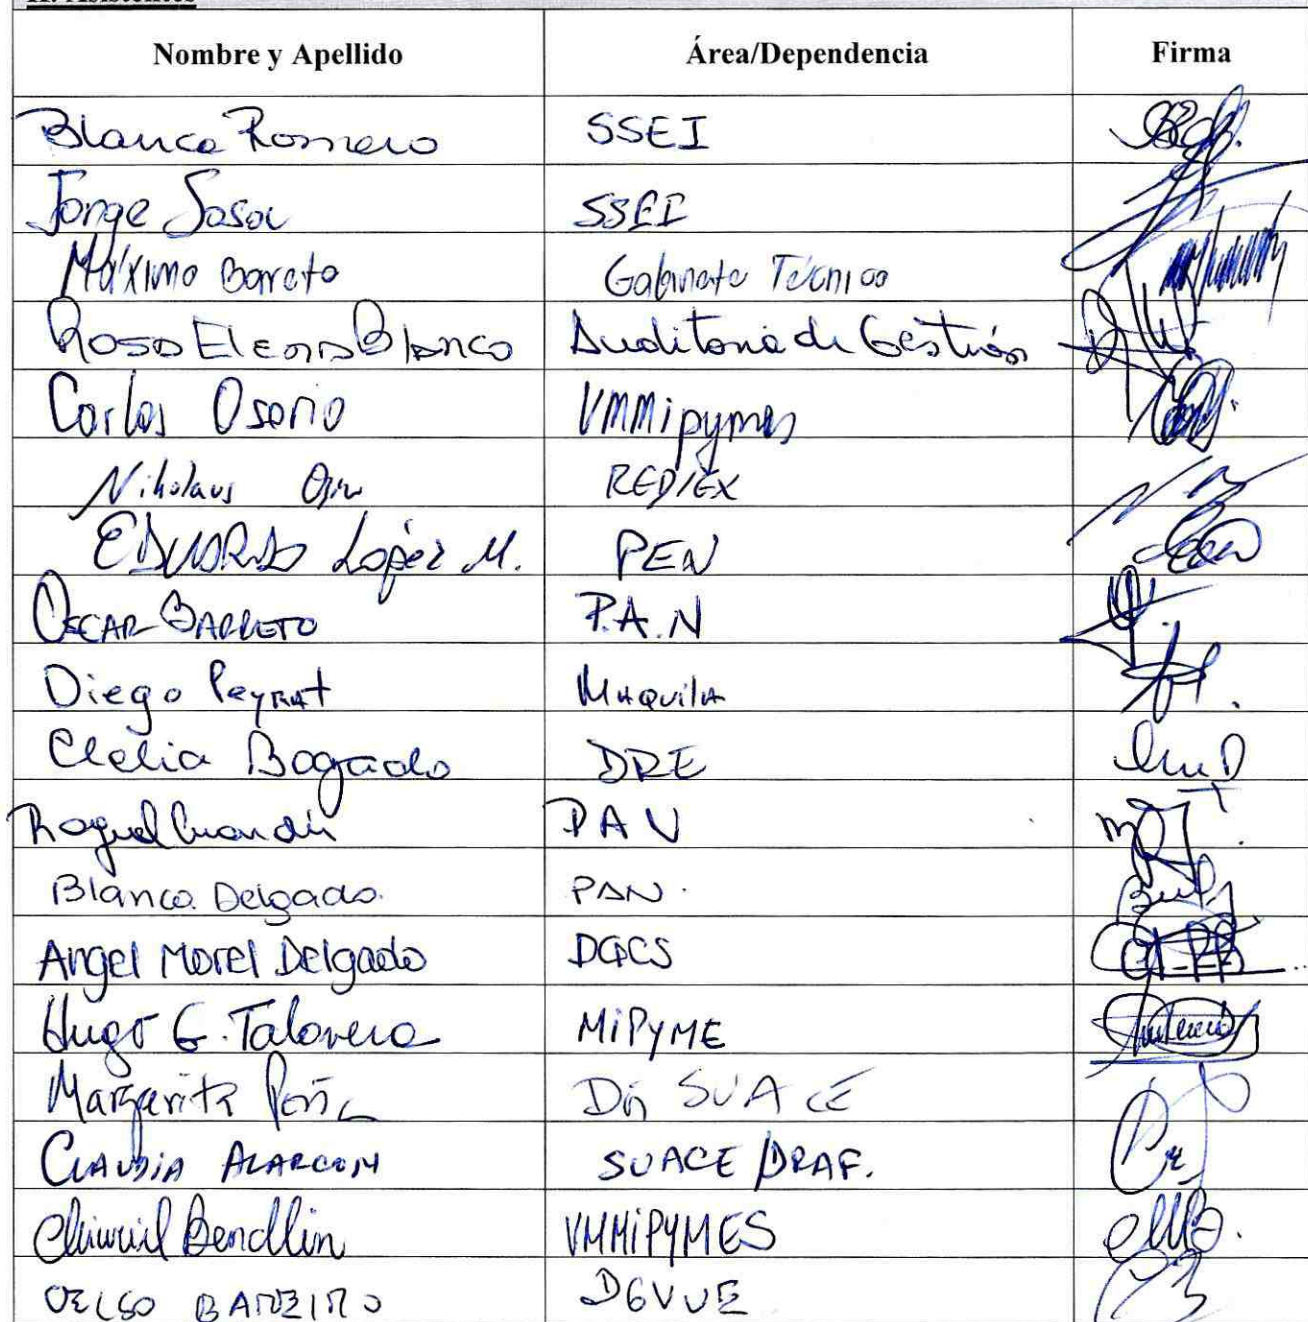 II. Asistentes
Nombre y Apellido Área/Dependencia Firma
Blanca Romero SSEI
Jorge Sosa SSEI
Máximo Barreto Gabinete Técnico
Rosa Elena Blanco Auditoria de Gestión
Carlos Osorio VMMipymes
Nikolaus REDIEX
EDUARDO López M. PEN
OSCAR BARRETO P.A.N
Diego Peyrat Maquila
Clelia Bogado DRE
Raquel PAN
Blanca Delgado. PAN.
Angel Morel Delgado DGCS
Hugo G. Talavera MIPYME
Margarita Peña Din SUACE
CLAUDIA ALARCON SUACE/DRAF.
Bendlin VMMIPYMES
CELSO BAREIRO DGVUE